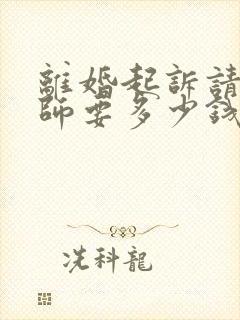 離婚起訴請
師要多少錢
冼科龍